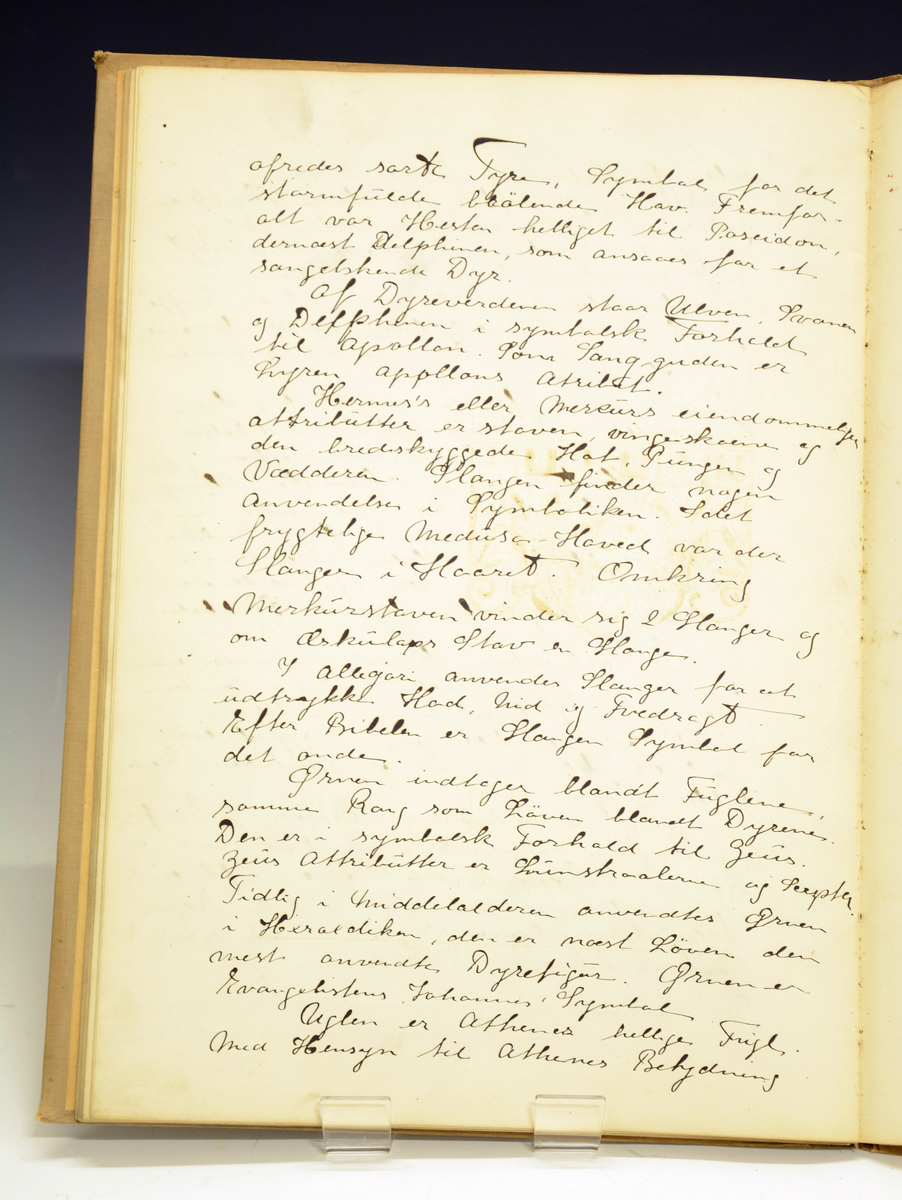 ofredes sorte Tyre, Symbol for det
stormfulde brölende Hav. Fremfor-
alt var Hesten helliget til Poseidon,
dernæst Delphinen, som ansaaes for et
sangelskende Dyr.
Af Dyreverdenen staar Ulven, Svanen
og Delfphinen i symbolsk Forhold
til Apollon. Som Sang-guden er
Lyren Apollons Atribut.
Hermes's eller Merkurs eiendommelige
attributter er staven, vingeskoene og
den bredskyggede Hat, Pungen og
Vædderen. Slangen finder nogen
anvendelse i Symboliken. I det
frygtelige Medusa-Hoved var der
Slanger i Haaret. Omkring
Merkurstaven vinder sig 2 Slanger og
om Æskulaps Stav en Slange.
I Allegori anvendes Slanger for at
udtrykke Had, Nid og Tvedragt.
Efter Bibelen er Slangen Symbol for
det onde.
Ørnen indtager blandt Fuglene,
samme Rang som Löven blandt Dyrene.
Den er i symbolsk Forhold til Zeus.
Zeus Attributter er Lünstraalerne og Scepter.
Tidlig i Middelalderen anvendtes Ørnen
i Heraldiken, den er næst Löven den
mest anvendte Dyrefigur. Ørnen er
Evangelistens Johannes' Symbol
Uglen er Athenes hellige Fugl.
Med Hensyn til Athenes Betydning